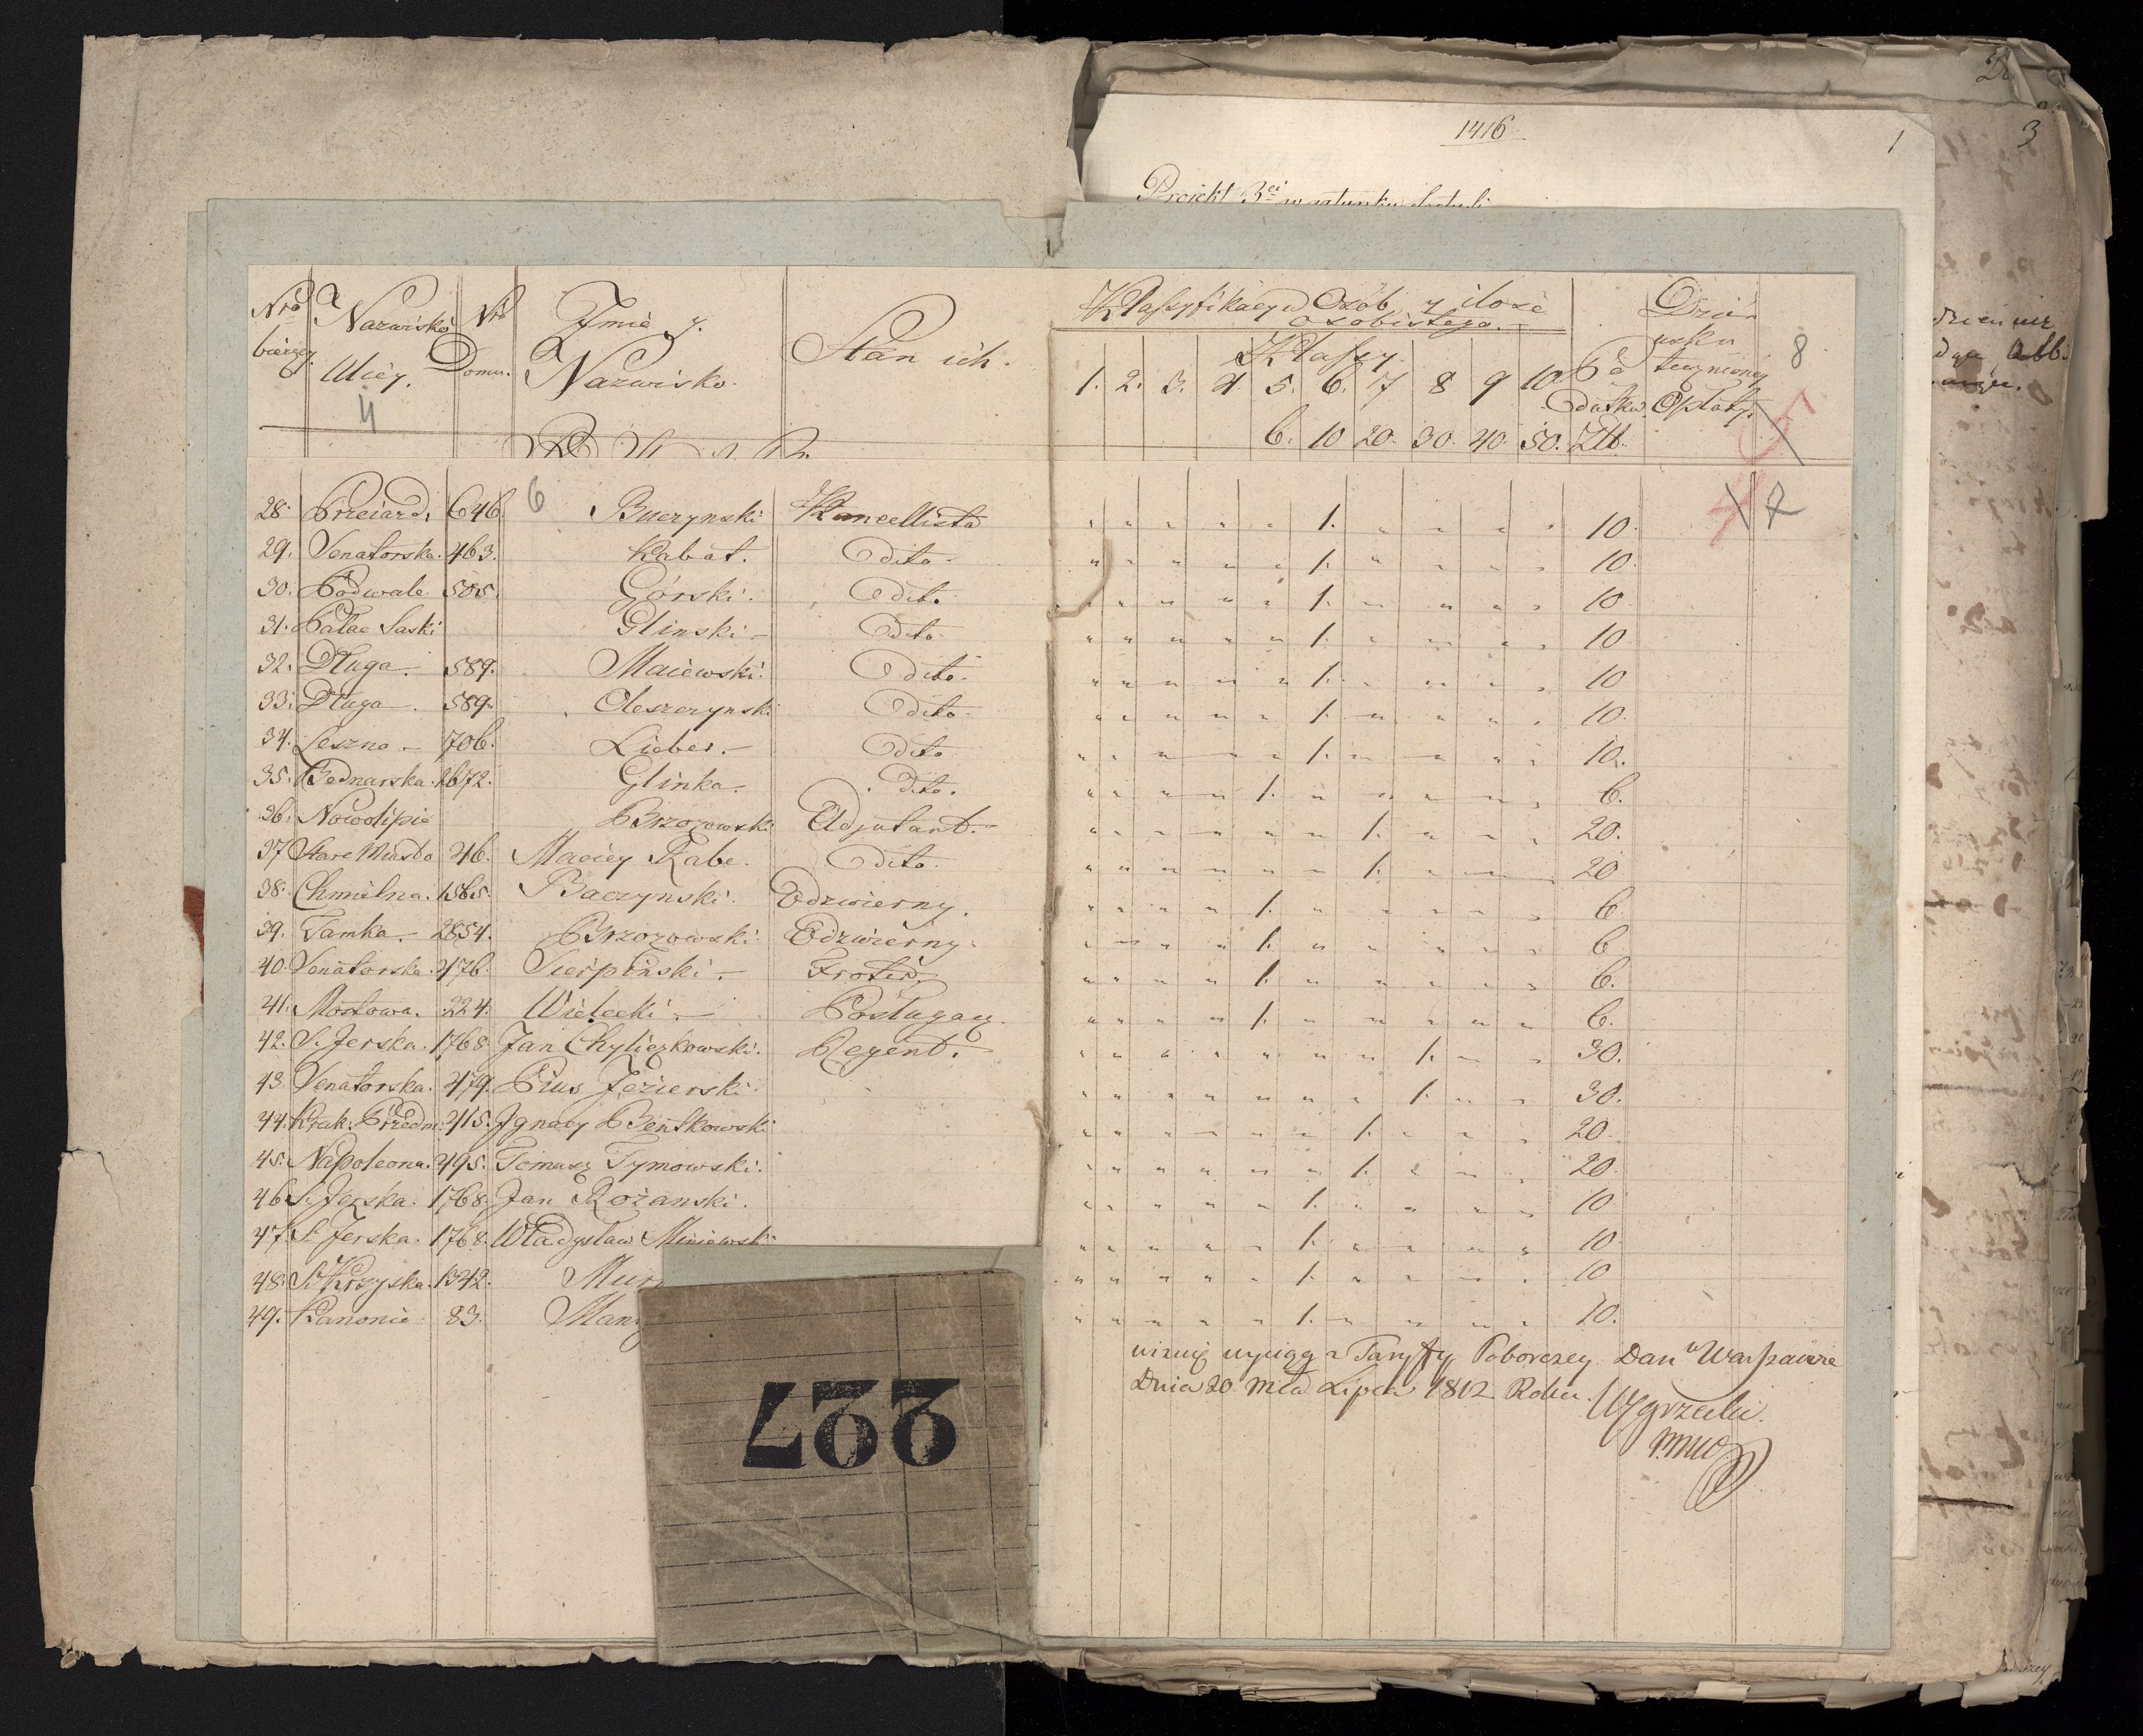 1416.
1
3
Projekt 3ci
Nro bieżący. Nazwisko Ulicy. Nro Domu. Jmie y Nazwisko. Stan ich. Klassyfikacya Osób y ilość osobistego. Klassy. Podatku Dzień uskutecznioney Opłaty.
8
4
1. 2. 3. 4. 5. 6. 7 8 9 10
6. 10 20. 30. 40. 50. Złł.
28. Przeiazd. 646. 6 Buczynski Kancellista " " " " " 1. " " " " 10.
29. Senatorska. 463. Kabat. Dito " " " " " 1. " " " " 10
30. Podwale. 505. Górski. Dito " " " " " 1. " " " " 10
31. Pałac Saski Glinski Dito " " " " " 1. " " " " 10
32. Długa. 589. Maiewski. Dito " " " " " 1. " " " " 10
33. Długa. 589. Oleszczynski Dito " " " " " 1. " " " " 10.
34. Leszno 706. Lieber. Dito " " " " " 1. " " " " 10.
35. Bednarska. 2672. Glinka. Dito. " " " " 1. " " " " " 6.
36. Nowolipie Brzozowski Adjutant. " " " " " " 1. " " " 20.
37 Stare Miasto 46. Maciey Rabe. Dito. " " " " " " 1. " " " 20
38. Chmielna. 1565. Baczynski. Odzwierny. " " " " 1. " " " " " 6
39. Tamka. 2854. Brzozowski Odzwierny. " " " " 1. " " " " " 6
40. Senatorska. 476. Sierpinski Froter " " " " 1. " " " " " 6.
41. Mostowa. 224. Wielecki Posługacz " " " " 1. " " " " " 6.
42. S. Jerska. 1768. Jan Chyliczkowski. Regent. " " " " " " " 1. " " 30.
43. Senatorska. 479. Pius Jezierski. " " " " " " " 1. " " 30.
44. Krak: Przedm. 415. Jgnacy Bentkowski " " " " " " 1. " " " 20.
45. Napoleona. 495. Tomasz Tymowski. " " " " " " 1. " " " 20.
46 S. Jerska. 1768. Jan Rożanski. " " " " " 1. " " " " 10
47. S. Jerska. 1768. Władysław Miniewski " " " " " 1. " " " " 10
48. S. Krzyska. 1342. " " " " " 1. " " " " 10
49. Kanonie 83. " " " " " 1. " " " " 10.
wyciąg z Taryffy Poborczey Dan w Warszawie
Dnia 20 Mca Lipca 1812 Roku.
227